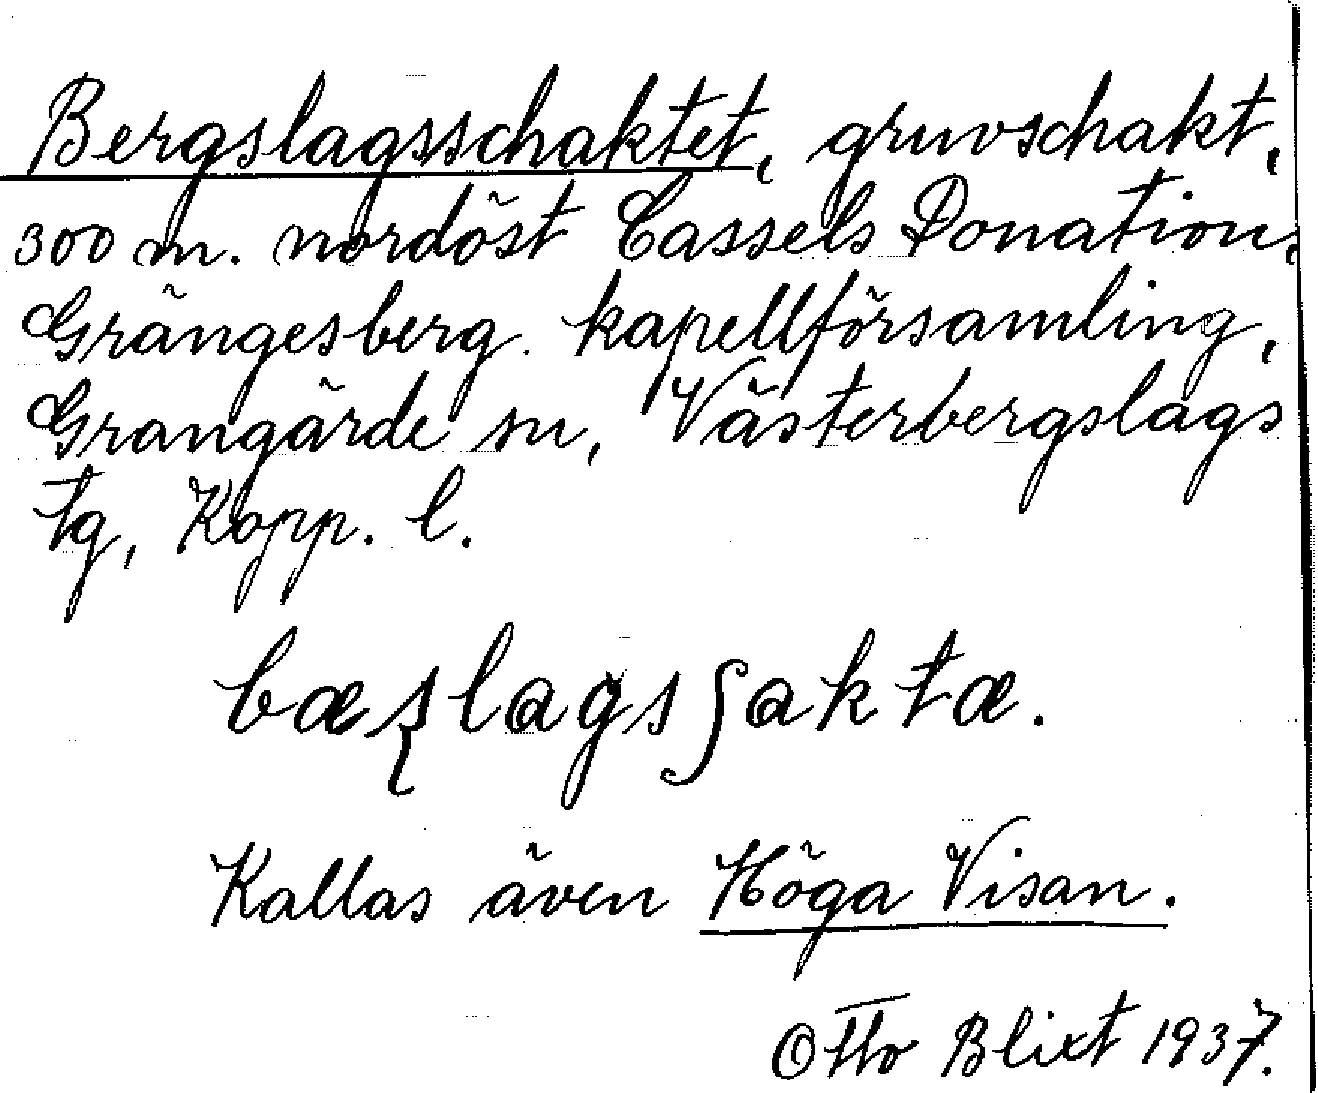 Bergslagsschaktet, gruvschakt,
300 m. nordöst Cassels Donation,
Grängesberg. kapellförsamling,
Grangärde sn, Västerbergslags
tg, Kopp. l.
bæʂlagsʃaktæ.
Kallas även Höga Visan.
Otto Blixt 1937.